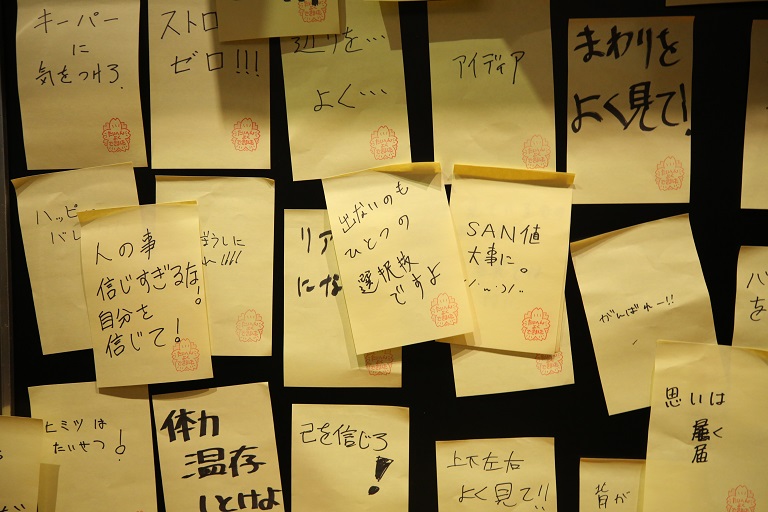 キーパー
に
気をつけろ.
ストロ
ゼロ!!!
辺りを…
よく…
アイディア
まわりを
よく見て!
ハッピ
バレ
人の事
信じすぎるな!
自分を
信じて!
ぼうしに
れ!!!!
リア
にな
出ないのも
ひとつの
選択枝
ですよ
SAN値
大事に。
がんばれー!!
バ
を
ヒミツは
たいせつ!
体力
温存
しとけよ
己を信じろ
!
上下左右
よく見て!!
背が
思いは
届く
届